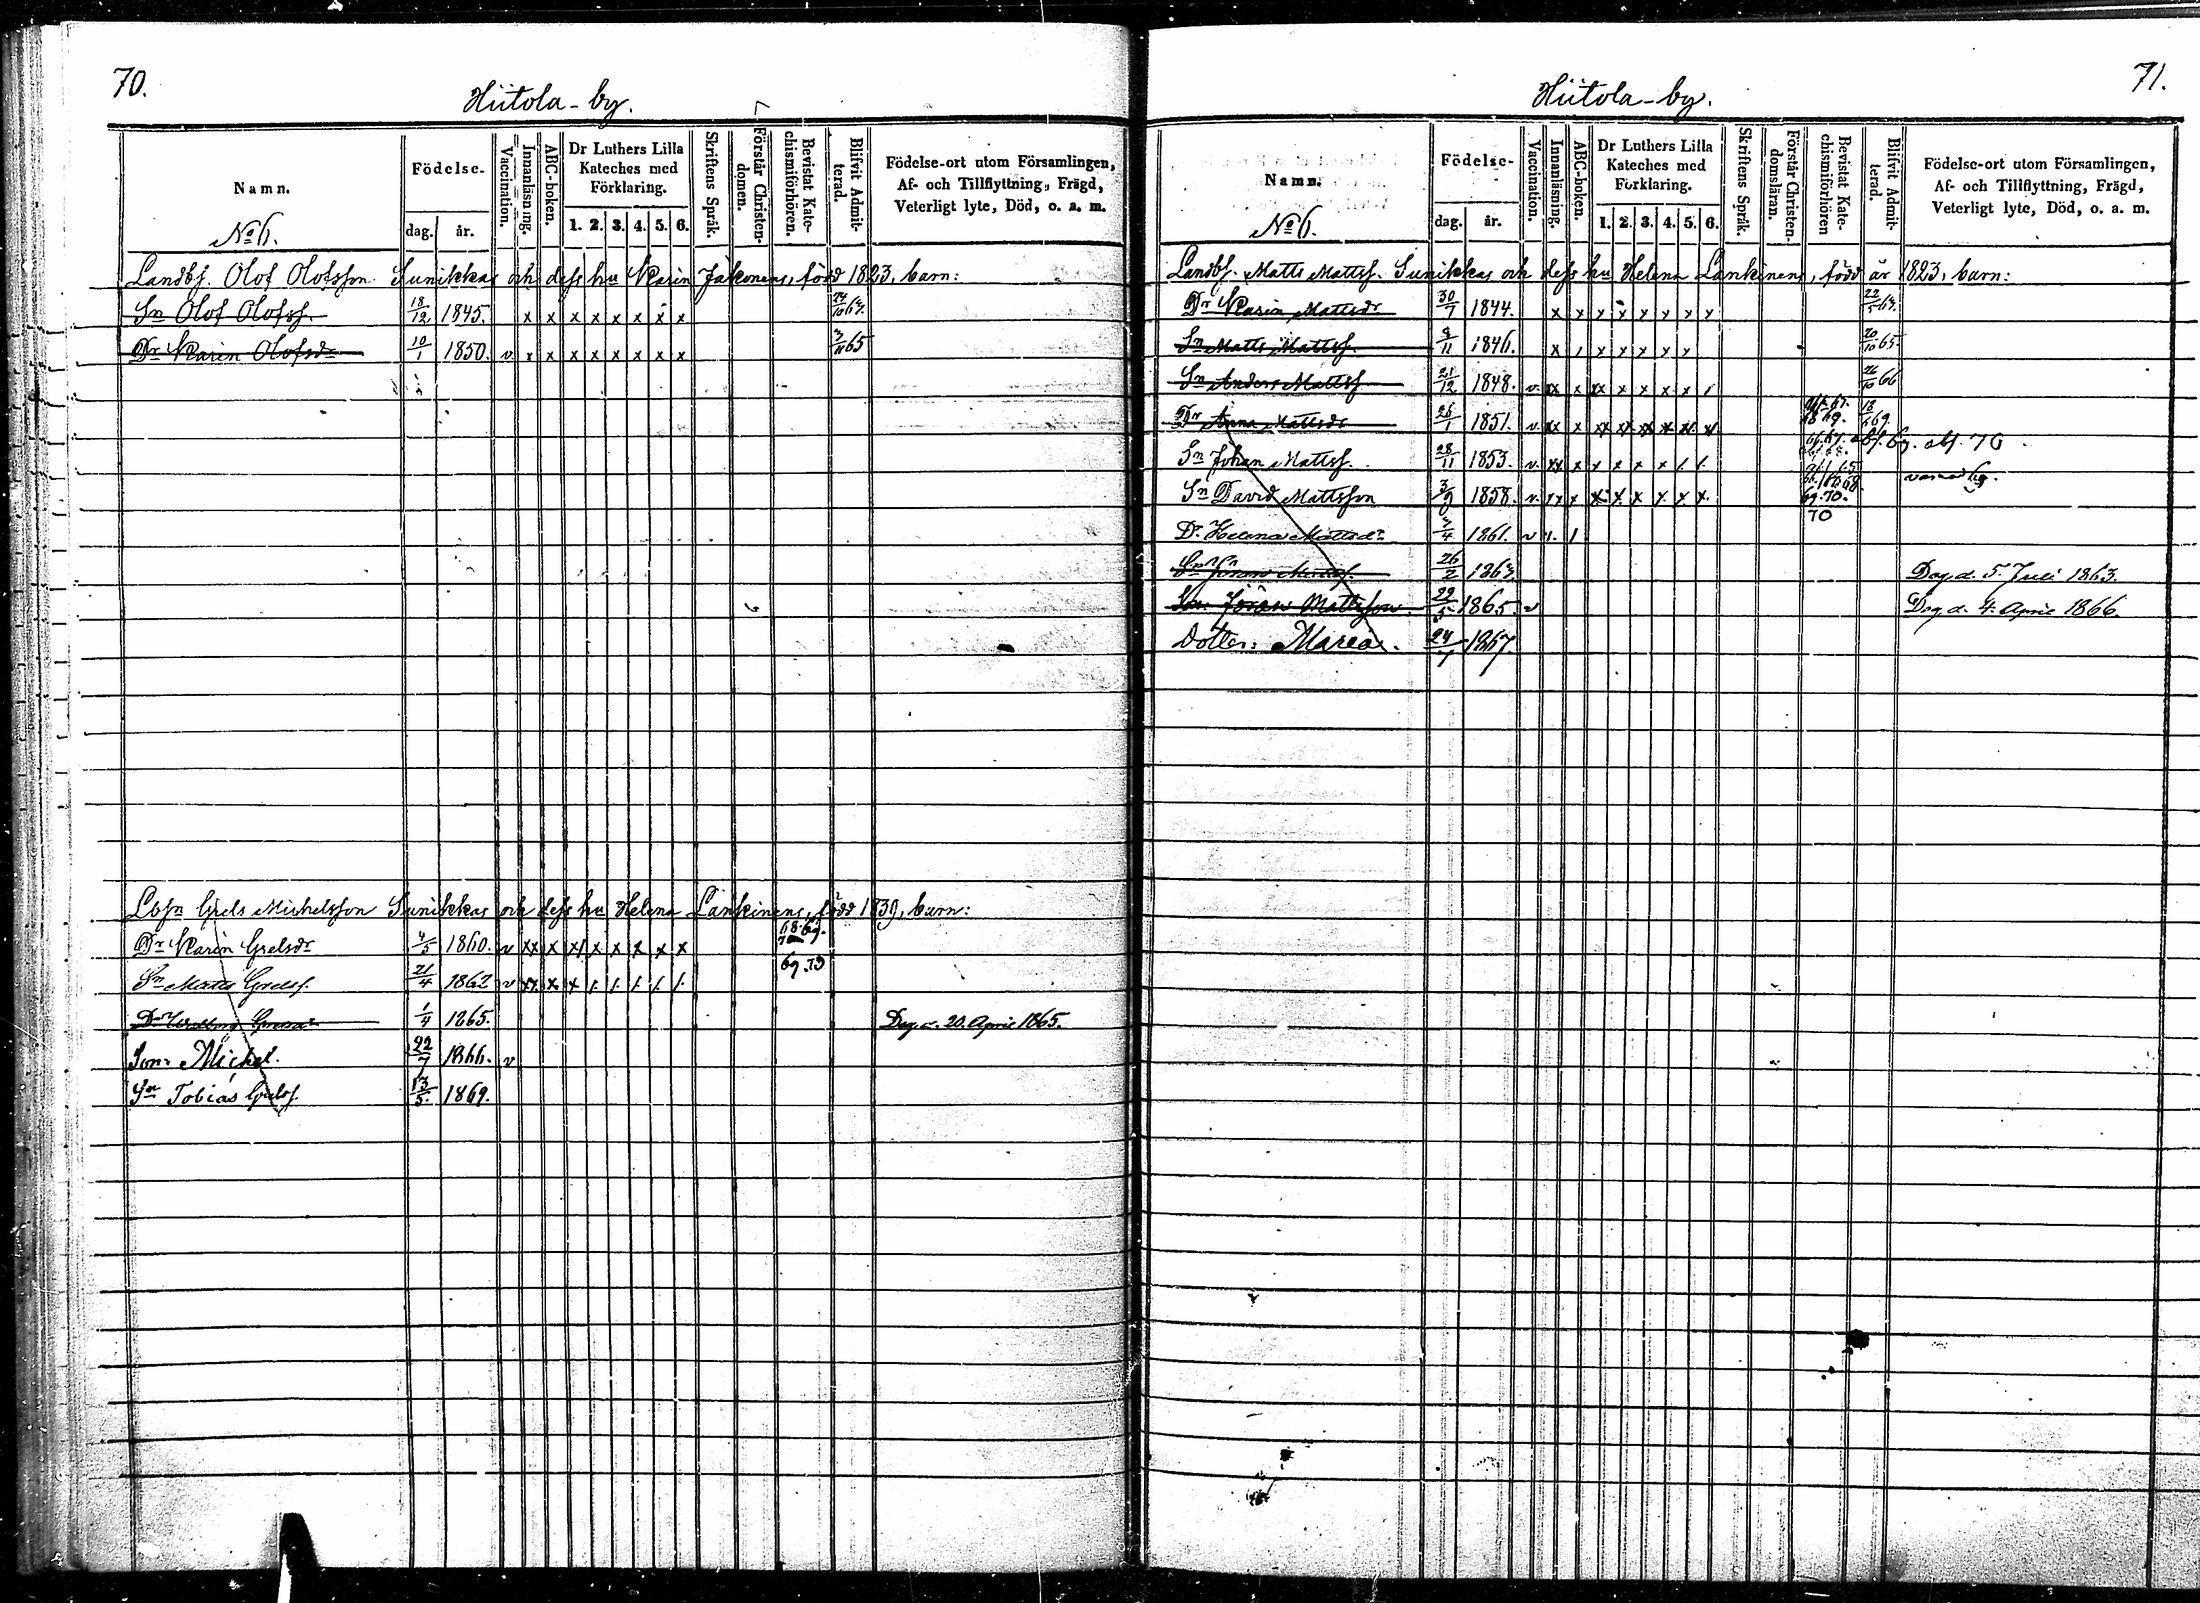 70.
Hiitola-by.
Namn.
No 6.
Födelse-
dag. år.
Vaccination.
Innanläsning.
ABC-boken.
Dr Luthers Lilla
Kateches med
Förklaring.
1. 2. 3. 4. 5. 6.
Skriftens Språk.
Förstår Christen-
domen.
Bevistat Kate-
chismiförhören.
Blifvit Admit-
terad.
Födelse-ort utom Församlingen,
Af- och Tillflyttning, Frägd,
Veterligt lyte, Död, o. a. m.
Landbf. Olof Olofsson Sunikkas och dess hu Karin Jäkonens, född 1823, barn:
Sn Olof Olofsf. 18/12 1845. x x x x x x x x
Dr Karin Olofsdr 10/1 1850. v x x x x x x x x 65
Lbfn Grels Michelsson Sunikkas och dess hu Helena Lankinens, född 1839, barn:
Dr Karin Grelsdr 4/5 1860. v xx x x x x x x x 68. 69. 70
Sn Grelsf. 21/4 1862 v xx x x 69. 70
1/4 1865. Dog d. 20. April 1865.
Son: Michel. 22/7 1866. v
Sn Tobias Grelsf. 13/5. 1869.
71.
Hiitola-by.
Namn.
No 6.
Födelse-
dag. år.
Vaccination.
Innanläsning.
ABC-boken.
Dr Luthers Lilla
Kateches med
Förklaring.
1. 2. 3. 4. 5. 6.
Skriftens Språk.
Förstår Christen-
domsläran.
Bevistat Kate-
chismiförhören
Blifvit Admit-
terad.
Födelse-ort utom Församlingen,
Af- och Tillflyttning, Frägd,
Veterligt lyte, Död, o. a. m.
Landbf. Matts Mattsf. Sunikkas och dess hu Helena Lankinens, född år 1823, barn:
Dr Karin Mattsdr 30/7 1844. x x x x x x x x
Sn Matts Mattsf. 8/11 1846. x x x x x x 20/10 65.
Sn Anders Mattsf 21/12 1848. v. xx x xx x x x x 26/10 66
Dr Anna Mattsdr 26/1 1851. v. xx x xx xx xx x x x 68. 69. 69.
Sn Johan Mattsf. 28/11 1853. v. xx x x x x x abs. 70
Sn David Mattsson 3/9 1858. v. xx x x x x x x x 69. 70.
Dr Helena Mattsdr 3/4 1861. v 70
26/2 1863. Dog d. 5. Juli 1863.
Son Jöran Mattsson 22/5 1865. v Dog d. 4. April 1866.
Dotter: Maria. 24/7 1867